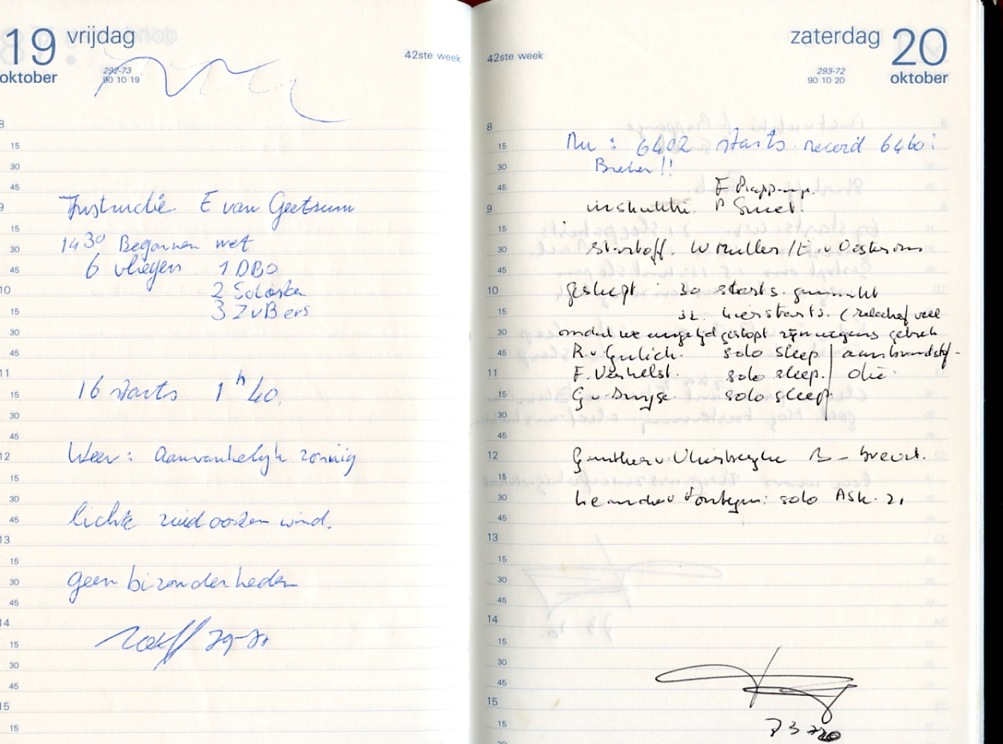 19 vrijdag
oktober
292-73
90 10 19
42ste week
8
15
30
45
9
15
30
45
10
15
30
45
11
15
30
45
12
15
30
45
13
15
30
45
14
15
30
45
15
15
Instructie E van Geetsum
1430 Begonnen met
6 vliegen 1 DBO
2 Solisten
3 ZvBers
16 starts 1h 40.
Weer: Aanvankelijk zonnig
lichte zuidoosten wind.
geen bizonderheden
42ste week
zaterdag 20
oktober
293-72
90 10 20
8
15
30
45
9
15
30
45
10
15
30
45
11
15
30
45
12
15
30
45
13
15
30
45
14
15
30
45
15
15
Nu : 6402 starts record 6460!
instruktie. P Smet.
W Muller /
gesleept : 30 starts.
32 lierstarts. (relatief veel
omdat we ongelijd gestopt zijn wegens gebrek
R.v. Gulich. solo sleep aan brandstof-
F. Verhelst. solo sleep. olie.
solo sleep.
Gunther v. B - brevet.
solo Ask. 21